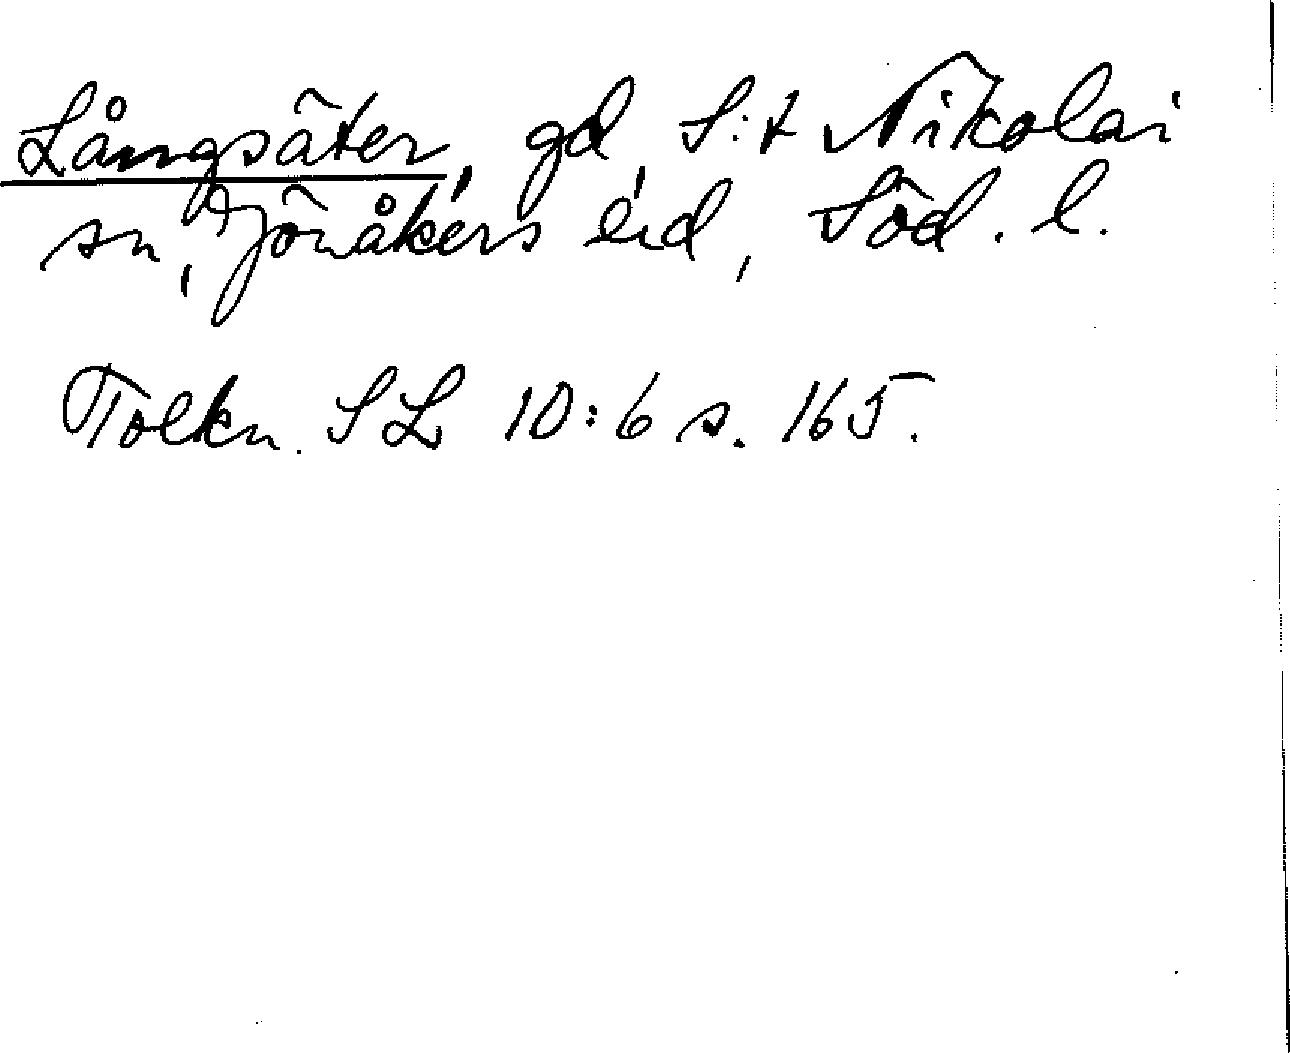 Långsäter, gd, S:t Nikolai
sn, Jönåkers hd, Söd. l.
Tolkn. SL 10:6 s. 165.